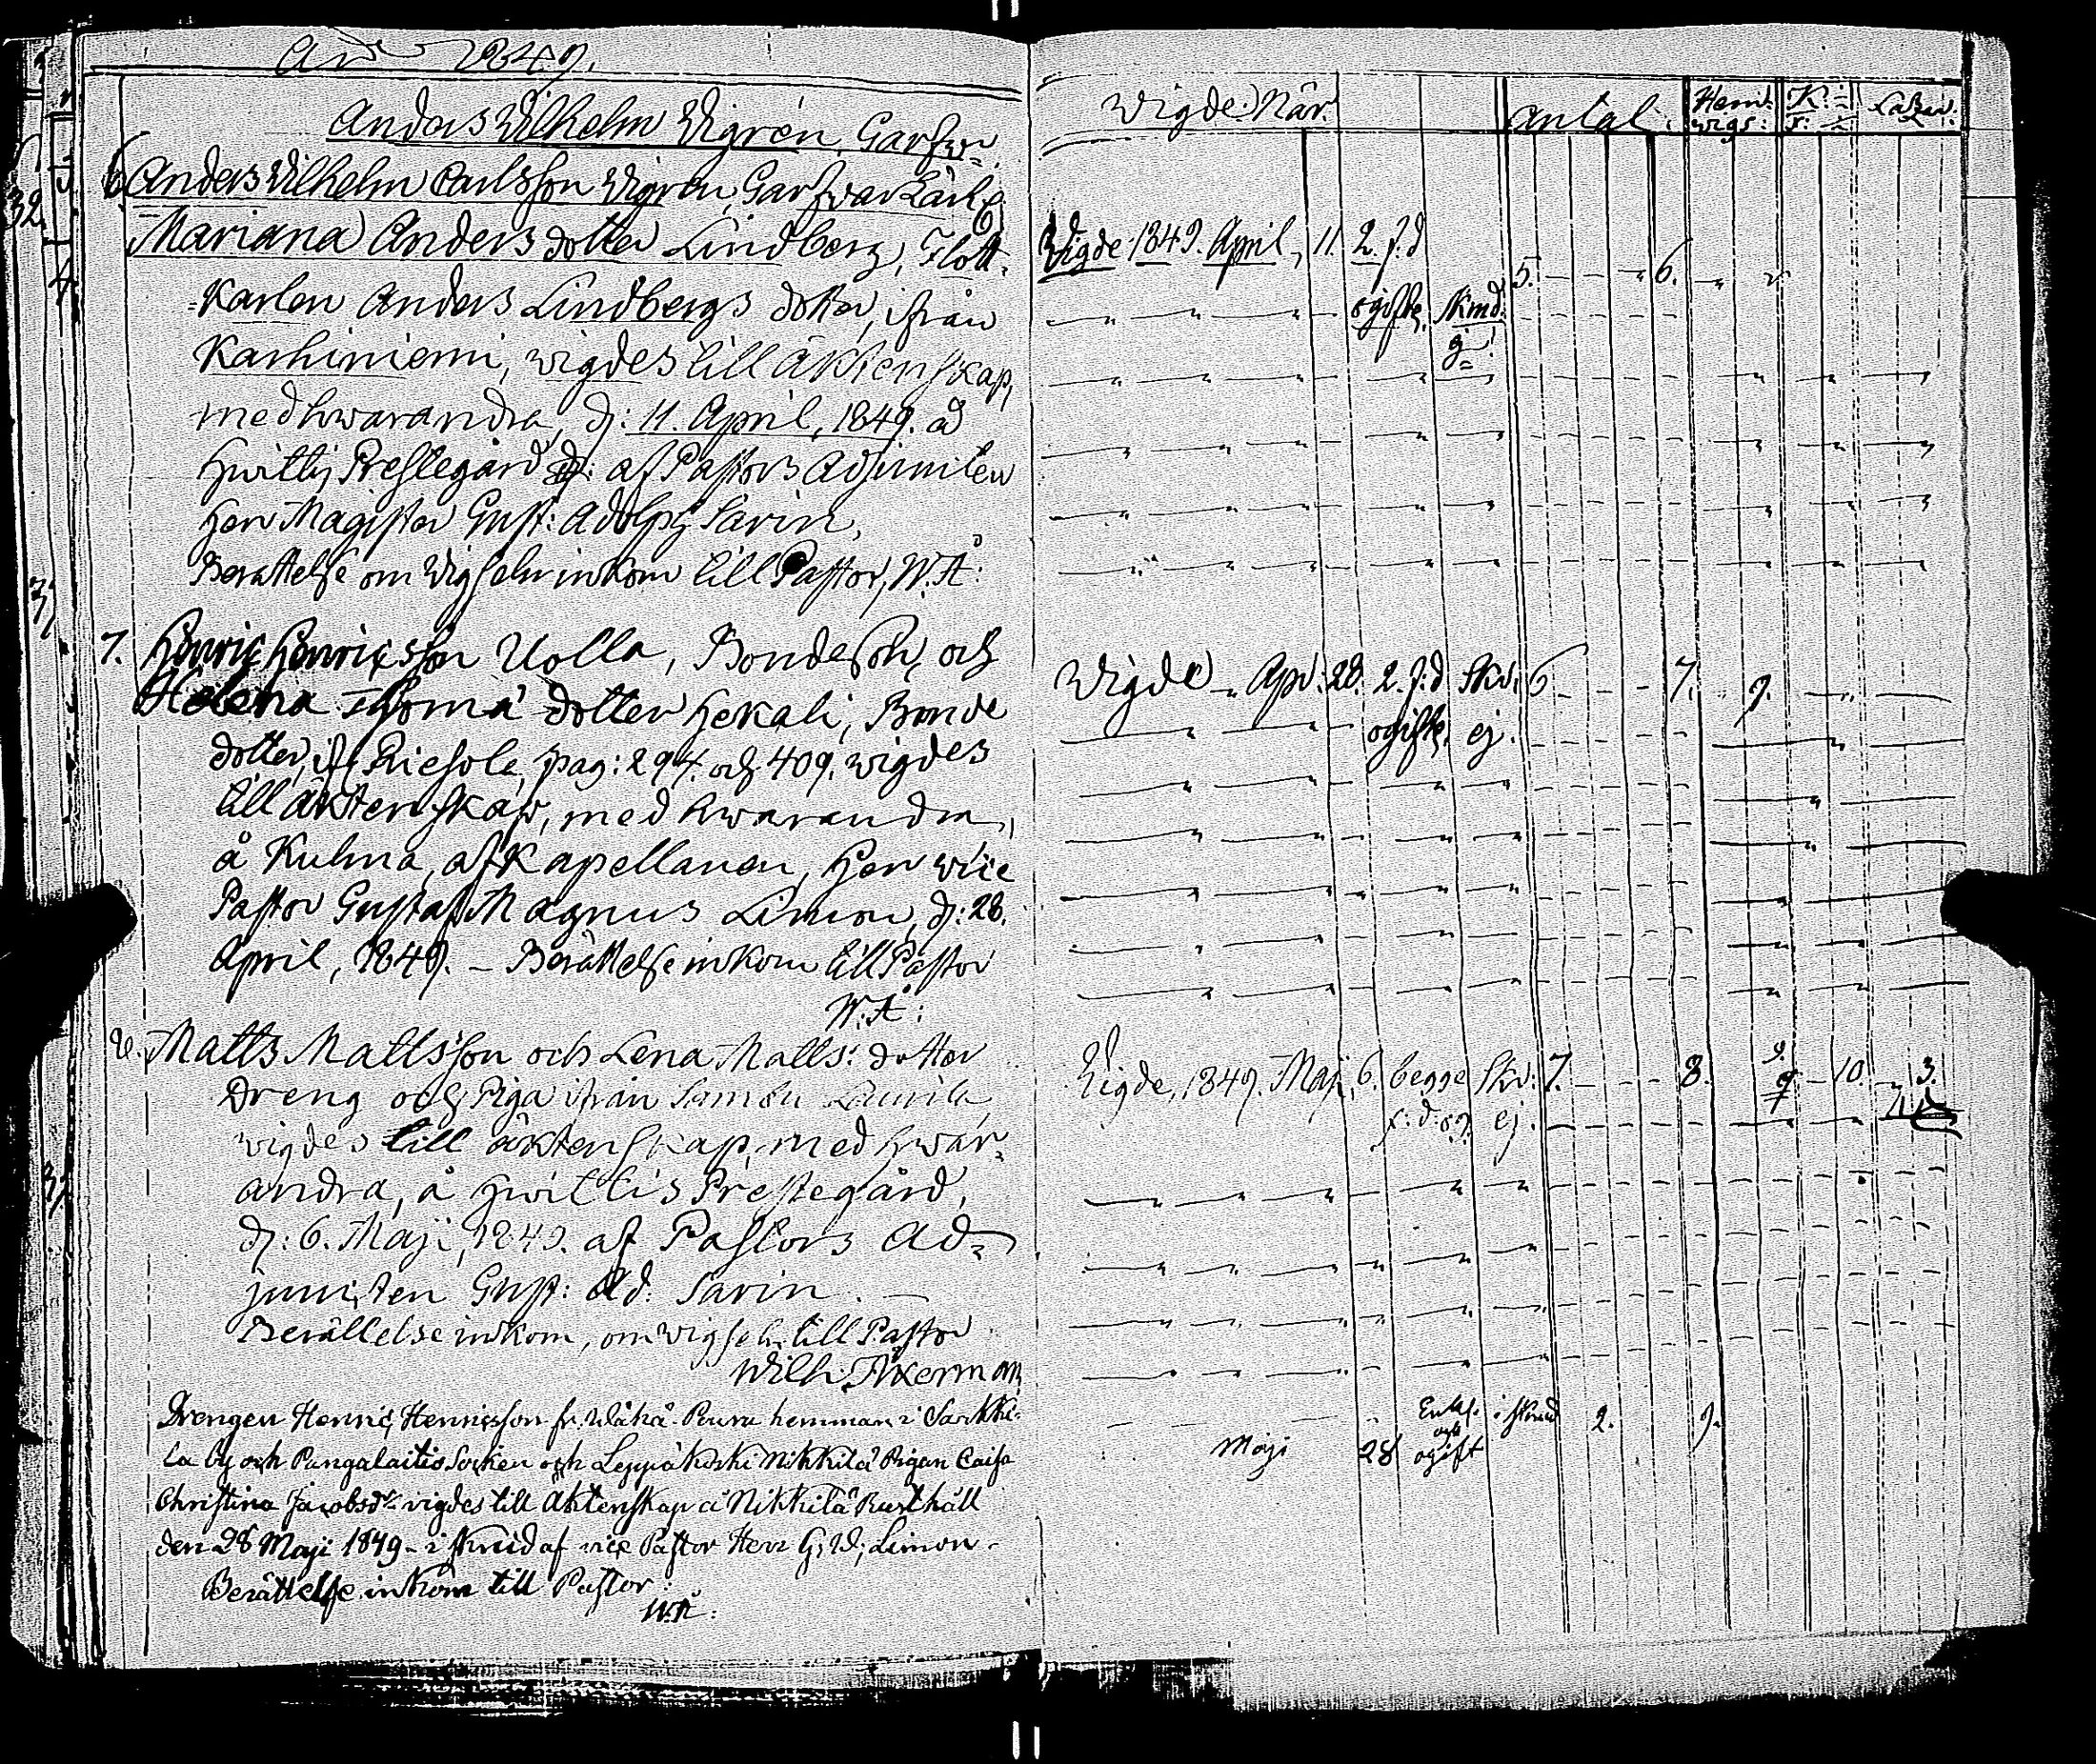 År 1849.
Anders Wilhelm Wigrén, Garfvar=
6 Anders Wilhelm Carlsson Wigrén, Garfvar Lärl:
Mariana Anders dotter Lindberg, Flott-
=Karlen Anders Lindbergs dotter, ifrån
Karhiniemi, wigdes till äktenskap,
med hwarandra, d: 11. April, 1849. å
Hwittis Prestegård af Pastors Adjuncten
Herr Magister Gust: Adolph Savin,
Berättelse om Wigseln inkom till Pastor, W. Å:
7. Henric Henricsson Uolla, Bondeson, och
Helena Thomä dotter Hekali, Bonde
dotter, if Riesola, pag: 294. och 409. wigdes
till äktenskap, med hwarandra,
å Kulma, af Kapellanen, Herr wice
Pastor Gustaf Magnus Limon, d: 28.
April, 1849. – Berättelse inkom till Pastor
W. Å:
8. Matts Mattsson och Lena Matts: dotter
Dreng och Piga ifrån Sambu Laurila
wigdes till äktenskap, med hwar-
andra, å Hwittis Prestegård,
d: 6. Maji, 1849. af Pastors Ad=
juncten Gust: Ad: Savin. –
Berättelse inkom, om wigseln till Pastor
Wilh: Åkerman
Drengen Henric Henricsson fr. Wähä Pouru hemman i Sarkki-
la by och Pungalaitio Socken och Leppäkoski Nikkilä Pigan Caisa
Christina Jacobsdr vigdes till Äktenskap å Nikkilä Rusthåll
den 28 Maji 1849 – i skrud af vice Pastor Herr G. W. Limon –
Berättelse inkom till Pastor:
W. Å:
Wigde När. Antal. Hem. wigs: K: Lazar.
Wigde 1849. April, 11. 2. f. d 5. 6.
ogifte, skrud. ej
Wigde Apr: 28. 2. f: d Skr: 6 7. 9.
ogifte, ej.
Wigde, 1849. Maj, 6. begge Skr: 7. 8. 9 10. 3.
f: d: og. ej.
Enkl. i skrud 2. 9.
Maji 28 och ogift